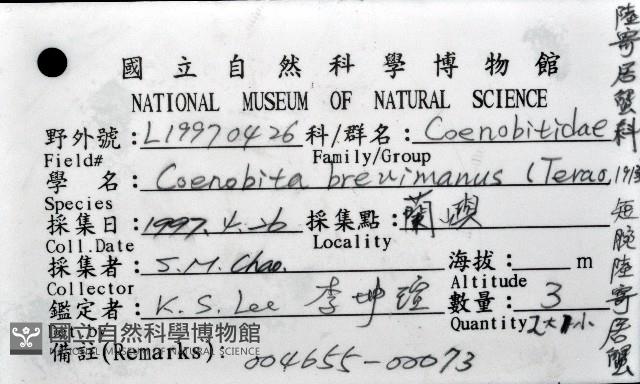 國立自然科學博物館
NATIONAL MUSEUM OF NATURAL SCIENCE
野外號:L19970426 科/群名:Coenobitidae
Field# Family/Group
學 名:Coenobita brevimanus (Terao, 1913
Species
採集日:1997.4.26 採集點:蘭嶼
Coll.Date Locality
採集者:S.M.Chao. 海拔: m
Collector Altitude
鑑定者:K.S.Lee 李坤瑄 數量:3
Det.by Quantity 2大1小
備註(Remarks): 004655-00073
陸寄居蟹科
短腕陸寄居蟹
國立自然科學博物館
NATIONAL MUSEUM OF NATURAL SCIENCE